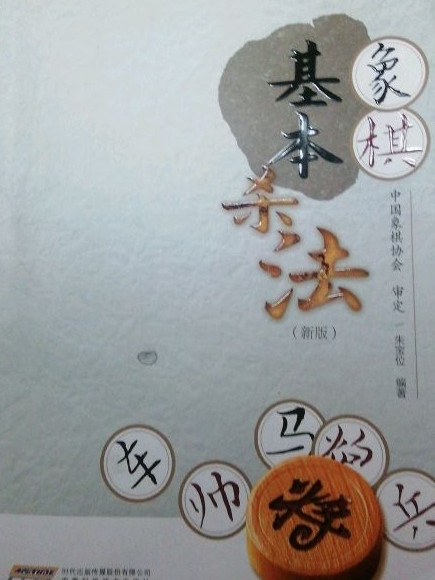 象棋
基本
杀法
(新版)
中国象棋协会 审定
朱宝位 编著
马
炮
车
帅
兵
将
时代出版传媒股份有限公司